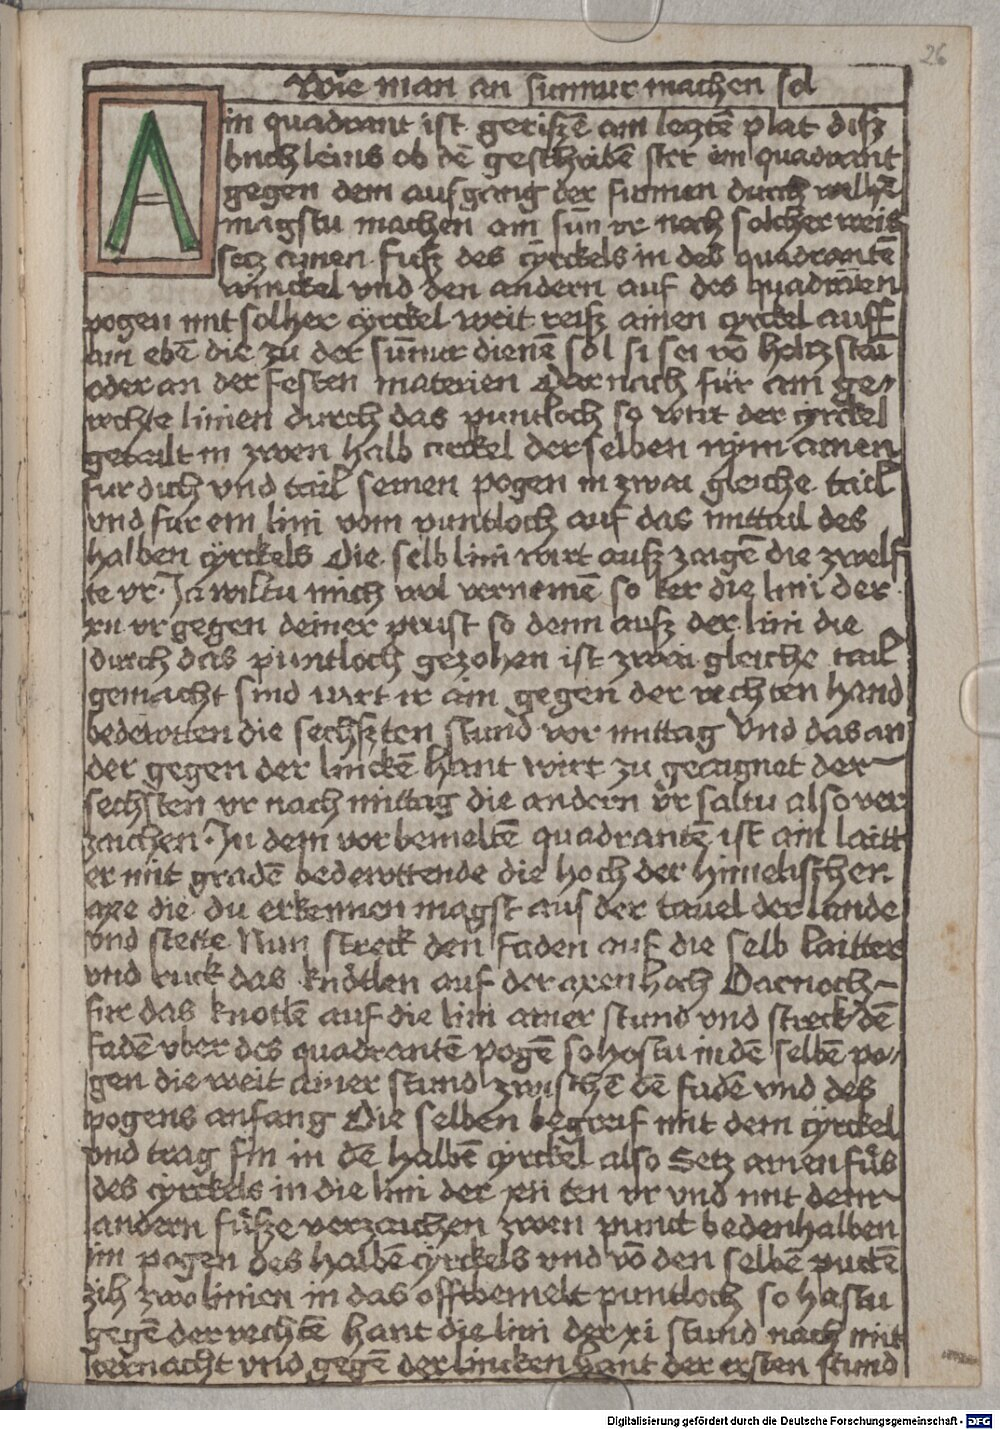 26
Wie man an sunnur machen sol
Ain quadrant ist gerissē am leztē plat diß
buchleins ob dē geschribē stet ein quadrant
gegen dem aufgang der sunnen durch welhē
magstu machen ain sūn vr noch solcher weis
setz ainen fuß des cyrckels in des quadrantē
winckel vnd den andern auf des quadrāten
pogen mit solher cyrckel weit reiß ainen cyrckel auff
ain ebē die zu der sūnur dienē sol si sei vō holtz stain
oder an der festen materien Darnach für ain ge-
rechte linien durch das puntloch so wirt der cyrckel
getailt in zwen halb circkel der selben nym ainen
fur dich vnd tail seinen pogen in zwai gleiche tail
vnd fur ein lini vom puntloch auf das mittail des
halben cyrckels Die selb lini wirt auß zaigē die zwelf
te vr. Ja wiltu mich wol vernemē so ker die lini der
xii vr gegen deiner prust so denn auß der lini die
durch das puntloch gezohen ist zwai gleiche tail
gemacht sind wirt ir ain gegen der rechten hand
bedewtten die sechßten stund vor mittag Vnd das an
der gegen der linckē hant wirt zu geaignet der
sechsten vr nach mittag die andern vr saltu also ver
zaichen. In dem vorbemeltē quadrantē ist ain laitt
er mit gradē bedewttende die hoch der himelischen
axe die du erkennen magst aus der tauel der lande
vnd stette Nun streck den faden auf die selb laitter
vnd ruck das knötlen auf der axen hoch Darnoch
fur das knotlē auf die lini ainer stund vnd streck dē
fadē vber des quadrantē pogē so hostu in dē selbē po-
gen die weit ainer stund zwischē dē fadē vnd des
pogens anfang Die selben begreif mit dem cyrckel
vnd trag sin in dē halbē cyrckel also Setz ainen fuß
des cyrckels in die lini der xii ten vr vnd mit dem
andern fuße verzaichen zwen punct bedenhalben
im pogen des halbē cyrckels vnd vō den selbē puctē
zih zwo linien in das offtbemelt puntloch so hastu
gegē der rechtē hant die lini der xi stund nach mit
ternacht vnd gegē der lincken hant der ersten stund
Digitalisierung gefördert durch die Deutsche Forschungsgemeinschaft - DFG